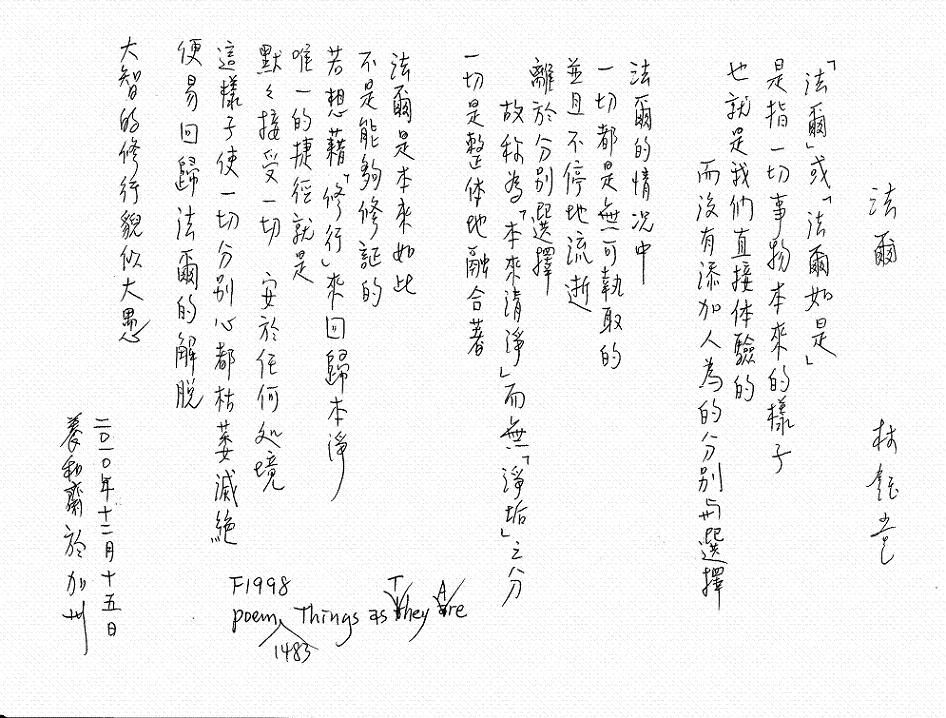 法爾　林鈺堂
「法爾」或「法爾如是」
是指一切事物本來的樣子
也就是我們直接体驗的
而沒有添加人為的分別與選擇
法爾的情況中
一切都是無可執取的
並且不停地流逝
離於分別選擇
故称為「本來清淨」而無「淨垢」之分
一切是整体地融合著
法爾是本來如此
不是能夠修証的
若想藉「修行」來回歸本淨
唯一的捷徑就是
默々接受一切　安於任何处境
這樣子使一切分別心都枯萎滅絕
便易回歸法爾的解脫
大智的修行貌似大愚
二〇一〇年十二月十五日
養和齋於加州
F1998
poem 1483 Things as They Are